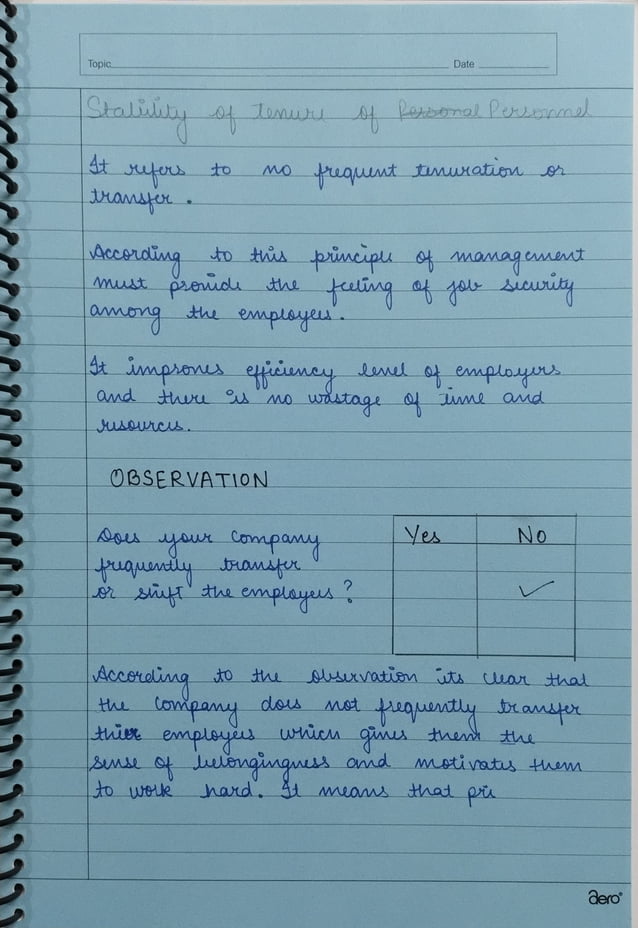 Topic Date
Stability of tenure of Personal Personnel
It refers to no frequent tenuration or
transfer.
According to this principle of management
must provide the feeling of job security
among the employees.
It improves efficiency level of employers
and there is no wastage of time and
resources.
OBSERVATION
Does your company
frequently transfer
or shift the employees?
Yes No
✓
According to the observation its clear that
the company does not frequently transfer
thier employees which gives them the
sense of belongingness and motivates them
to work hard. It means that pri
aero